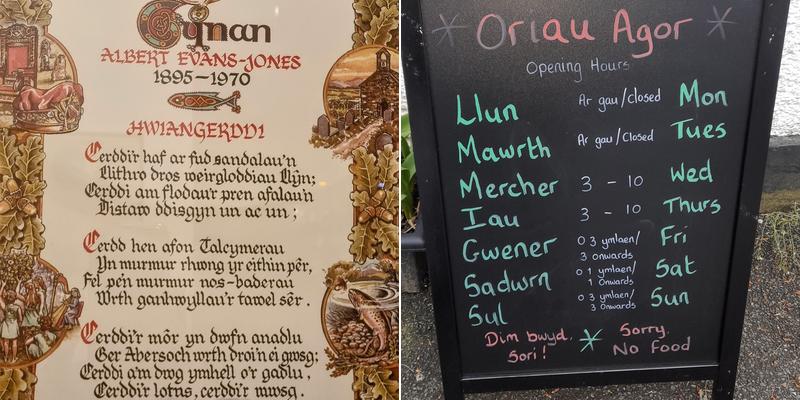 Cynan
ALBERT EVANS-JONES
1895–1970
HWIANGERDDI
Cerddi'r haf ar fud sandalau'n
Llithro dros weirgloddiau Llŷn;
Cerddi am flodau'r pren afalau'n
Distaw ddisgyn un ac un;
Cerdd hen afon Talcymerau
Yn murmur rhwng yr eithin pêr,
Fel pe'n murmur nos-baderau
Wrth ganhwyllau'r tawel sêr.
Cerddi'r môr yn dwfn anadlu
Ger Abersoch wrth droi'n ei gwsg;
Cerddi a'm dwg ymhell o'r gadlu,
Cerddi'r lotus, cerddi'r mwsg.
Oriau Agor
Opening Hours
Llun Ar gau/Closed Mon
Mawrth Ar gau/Closed Tues
Mercher 3 - 10 Wed
Iau 3 - 10 Thurs
Gwener O 3 ymlaen/ 3 onwards Fri
Sadwrn O 1 ymlaen/ 1 Onwards Sat
Sul O 3 ymlaen/ 3 onwards Sun
Dim bwyd. Sori!
Sorry. No Food